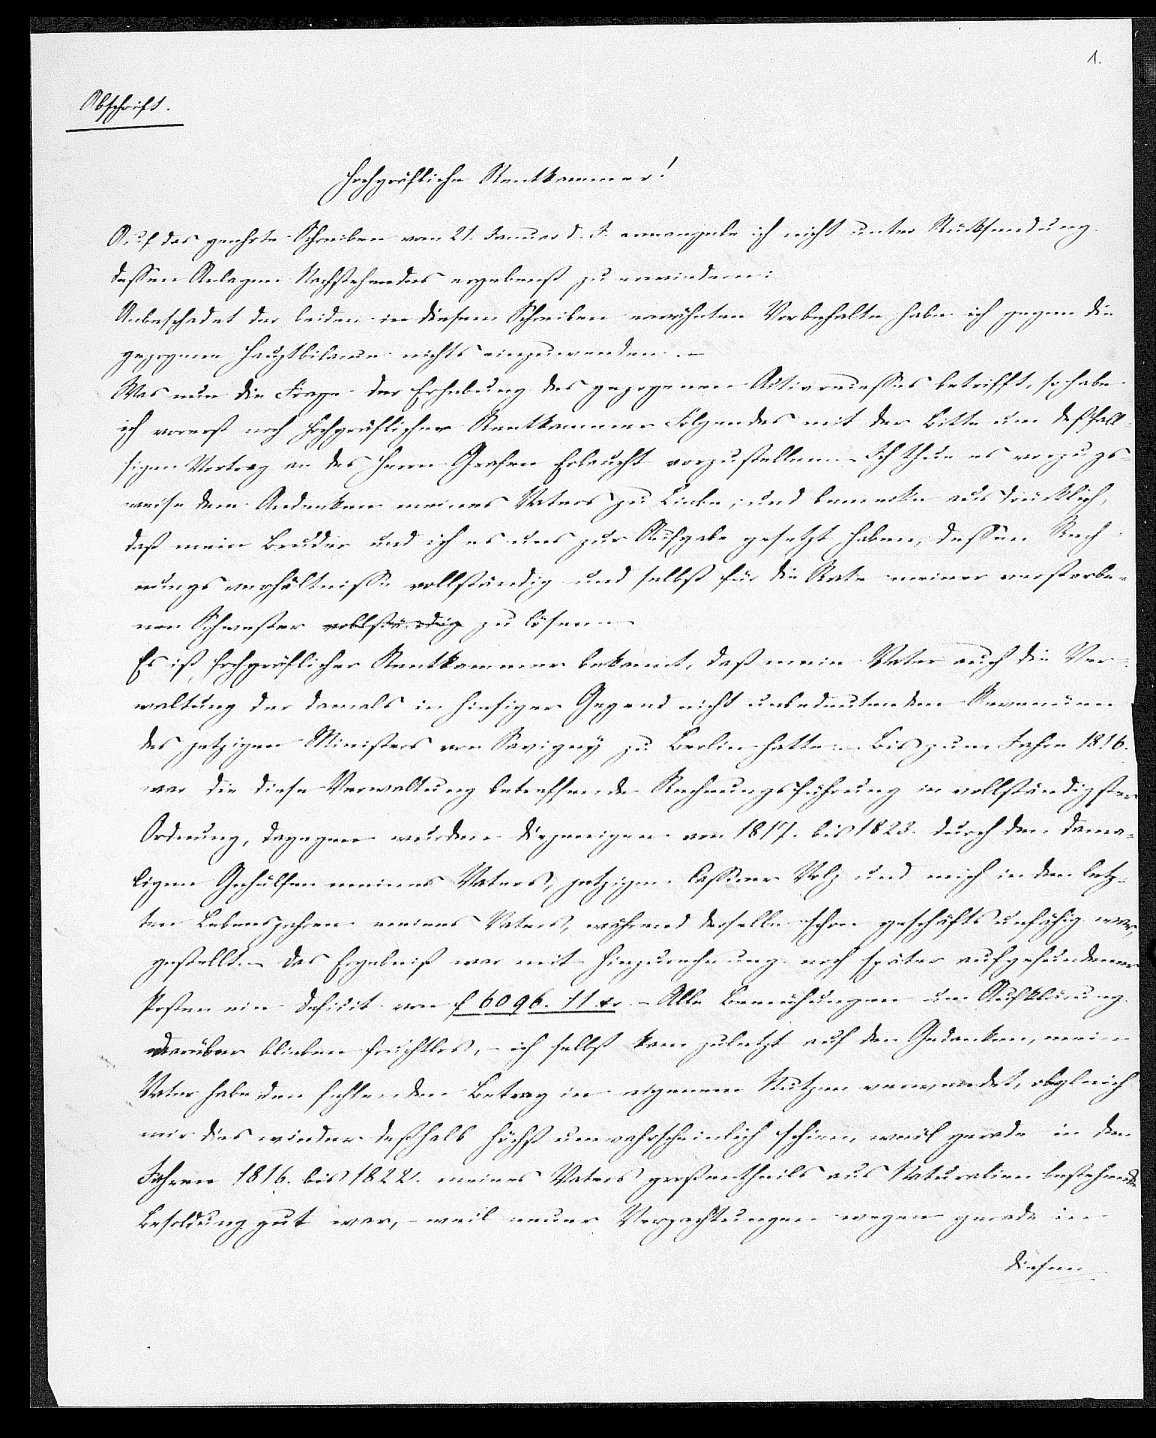 1.
Abschrift.
Hochgräfliche Rentkammer!
Auf das geehrte Schreiben vom 21. Januar d. J. ermangele ich nicht unter Rücksendung
dessen Anlagen Nachstehendes ergebenst zu erwiedern:
Unbeschadet der beiden in diesem Schreiben erwähnten Vorbehalte habe ich gegen die
gezogene Hauptbilance nichts einzuwenden. –
Was nun die Frage der Erhebung des gezogenen Activrecesses betrifft, so habe
ich vorerst noch Hochgräflicher Rentkammer Folgendes mit der Bitte um desfall-
sigen Vortrag an des Herrn Grafen Erlaucht vorzustellen. – Ich thue es vorzugs-
weise dem Andenken meines Vaters zu Liebe, und bemerke ausdrücklich,
daß mein Bruder und ich es uns zur Aufgabe gesetzt haben, dessen Rech-
nungsverhältnisse vollständig und selbst für die Rate meiner verstorbe-
nen Schwester vollständig zu lösen. –
Es ist Hochgräflicher Rentkammer bekannt, daß mein Vater auch die Ver-
waltung der damals in hiesiger Gegend nicht unbedeutenden Revenüen
des jetzigen Ministers von Savigny zu Berlin hatte. – Bis zum Jahre 1816.
war die diese Verwaltung betreffende Rechnungsführung in vollständigster
Ordnung, dagegen wurden diejenigen von 1817. bis 1823. durch den dama-
ligen Gehülfen meines Vaters, jetzigen Volz und mich in den letz-
ten Lebensjahren meines Vaters, während derselbe schon geschäftsunfähig war,
gestellt. – Das Ergebniß war mit Hinzurechnung noch später aufgefundener
Posten ein Deficit von f 6096. 11 xr – Alle Bemühungen um Aufklärung
darüber blieben fruchtlos, – ich selbst kam zuletzt auf den Gedanken, mein
Vater habe den fehlenden Betrag in eigenem Nutzen verwendet, obgleich
mir dies wieder deßhalb höchst unwahrscheinlich schien, weil gerade in den
Jahren 1816. bis 1822. meines Vaters großentheils aus Naturalien bestehende
Besoldung gut war, – weil neuer Verpachtungen wegen gerade in
diesen